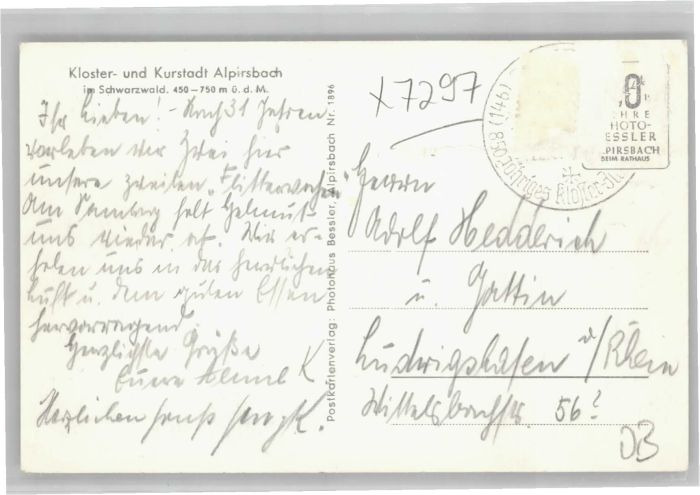 Kloster- und Kurstadt Alpirsbach
im Schwarzwald. 450–750 m ü. d. M.
Ihr Lieben! – Nach 31 Jahren
verleben wir zwei hier
unsere zweiten „Flitterwochen"
Am Samstag holt Helmut
uns wieder ab. Wir er-
holen uns in der herrlichen
Luft u. dem guten Essen
hervorragend.
Herzlichste Grüße
Eure K
Herzlichen Gruß
Postkartenverlag: Photohaus Bessler, Alpirsbach Nr. 1896
x7297
850-jähriges Kloster
HRE
HOTO-
ESSLER
LPIRSBACH
BEIM RATHAUS
Herrn
Adolf Hedderich
u. Gattin
Ludwigshafen a/Rhein
Wittelsbachstr. 56?
DB